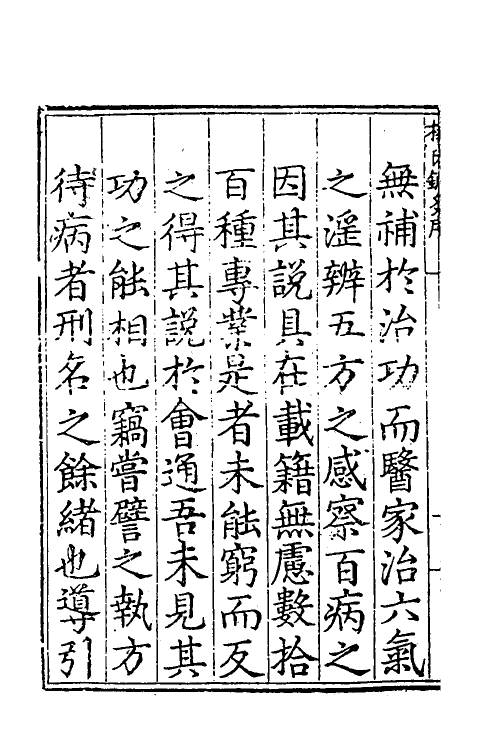 無補於治功而醫家治六氣
之淫辨五方之感察百病之
因其說具在載籍無慮數拾
百種專業是者未能窮而反
之得其說於會通吾未見其
功之能相也竊嘗譬之執方
待病者刑名之餘緒也導引